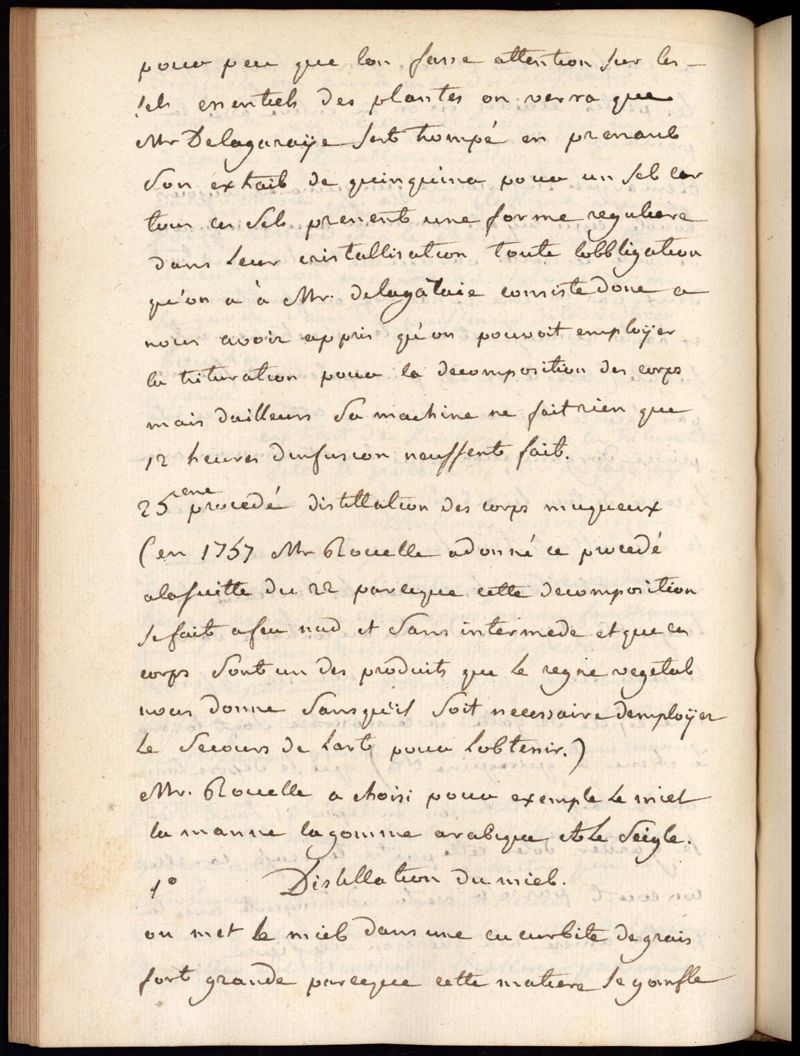 pour peu que lon fasse attention sur les
sels essentiels des plantes on verra que
Mr Delagaraÿe sest trompé en prenant
son extrait de quinquina pour un sel car
tous ces sels presentent une forme reguliere
dans leur cristallisation toute lobbligation
qu'on a à Mr. delagataie consiste donc a
nous avoir appris qu'on pouvoit employer
la trituration pour la decomposition des corps
mais dailleurs sa machine ne fait rien que
12 heures dinfusion neussent fait.
25eme procedé distillation des corps muqueux
(en 1757 Mr Rouelle a donné ce procedé
alasuitte du 22 parceque cette decomposition
se fait a feu nud et sans intermede et que ces
corps sont un des produits que le regne vegetal
nous donne sansqu'il soit necessaire demploÿer
le secours de lart pour lobtenir.)
Mr. Rouelle a choisi pour exemple le miel
la manne la gomme arabique et le seigle.
1° Distillation du miel.
on met le miel dans une cucurbite de grais
fort grande parceque cette matiere se gonfle